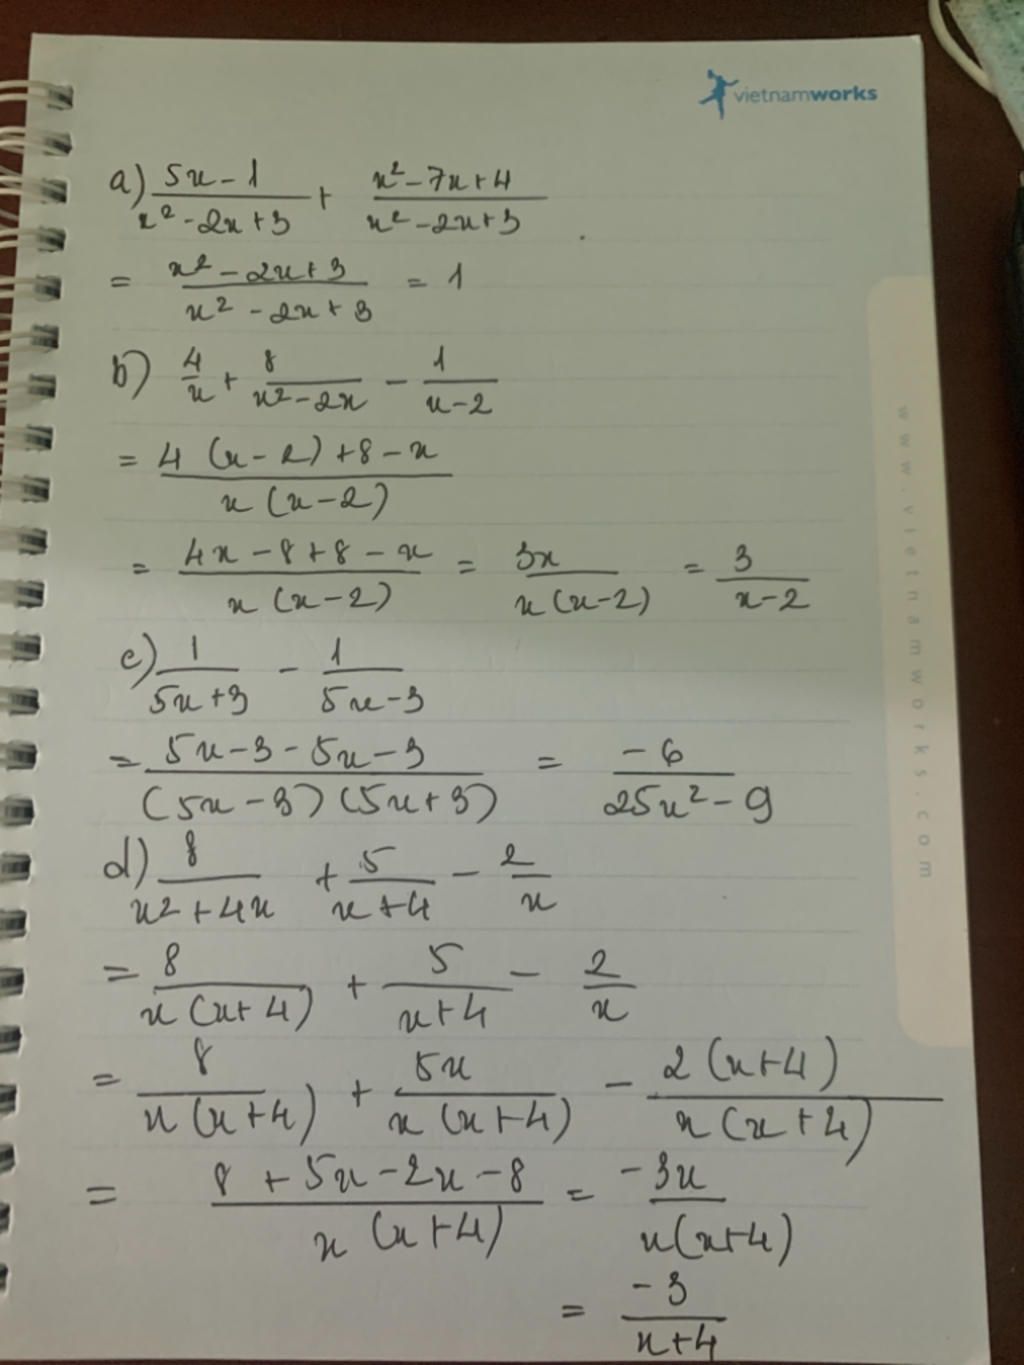 vietnamworks
a) (5x - 1)/(x² - 2x + 3) + (x² - 7x + 4)/(x² - 2x + 3)
= (x² - 2x + 3)/(x² - 2x + 3) = 1
b) 4/x + 8/(x² - 2x) - 1/(x - 2)
= (4 (x - 2) + 8 - x)/(x (x - 2))
= (4x - 8 + 8 - x)/(x (x - 2)) = 3x/(x (x - 2)) = 3/(x - 2)
c) 1/(5x + 3) - 1/(5x - 3)
= (5x - 3 - 5x - 3)/((5x - 3) (5x + 3)) = -6/(25x² - 9)
d) 8/(x² + 4x) + 5/(x + 4) - 2/x
= 8/(x (x + 4)) + 5/(x + 4) - 2/x
= 8/(x (x + 4)) + 5x/(x (x + 4)) - 2 (x + 4)/(x (x + 4))
= (8 + 5x - 2x - 8)/(x (x + 4)) = -3x/(x (x + 4))
= -3/(x + 4)
www.vietnamworks.com